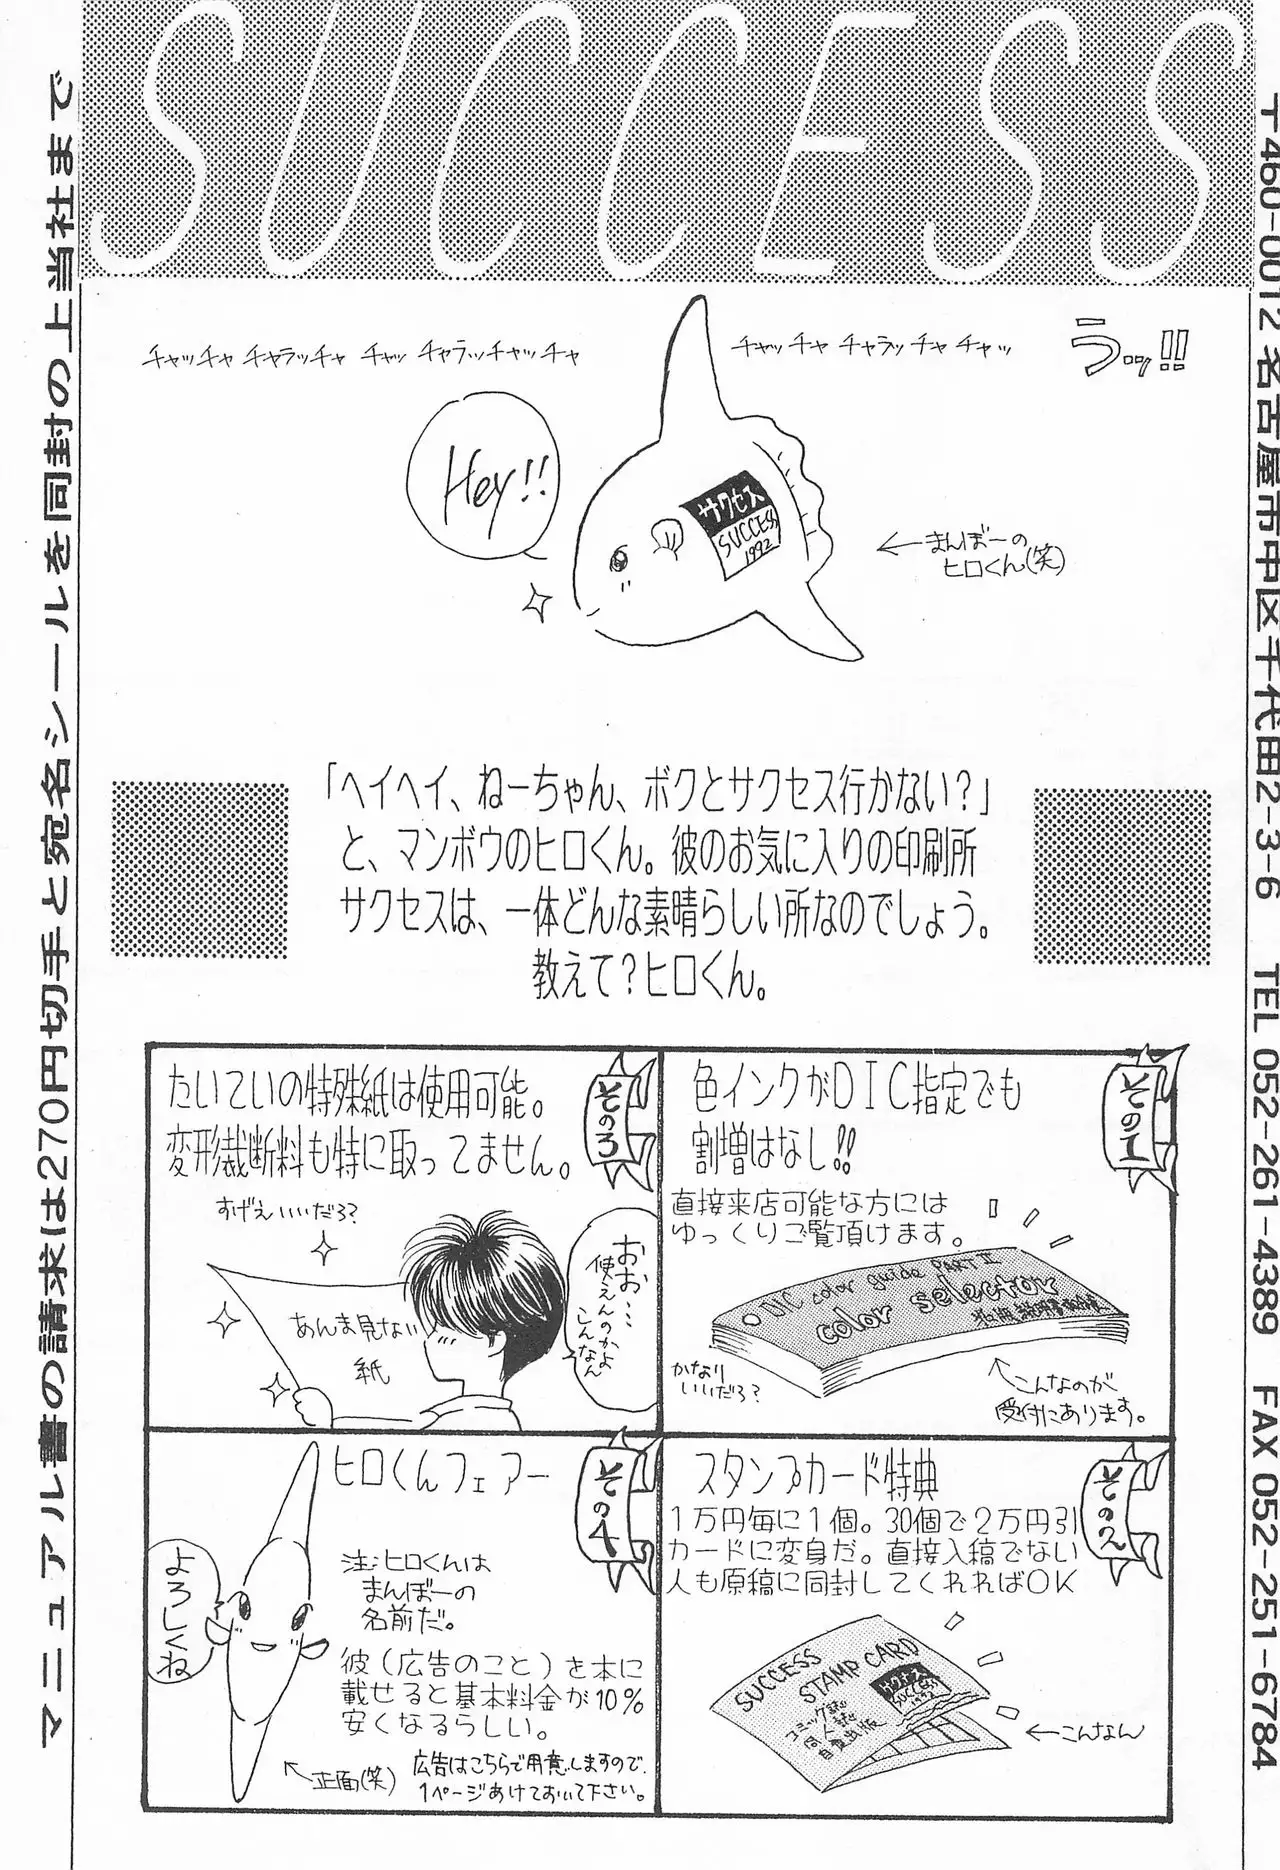 SUCCESS
〒460-0012名古屋市中区千代田2-3-6　TEL 052-261-4389　FAX 052-251-6784
うッ!!
チャッチャ チャラッチャ チャッ
チャッチャ チャラッチャ チャッ チャラッチャッチャ
Hey!!
サクセス
SUCCESS
1992
←まんぼーの
ヒロくん(笑)
「ヘイヘイ、ねーちゃん、ボクとサクセス行かない?」
と、マンボウのヒロくん。彼のお気に入りの印刷所
サクセスは、一体どんな素晴らしい所なのでしょう。
教えて?ヒロくん。
その1
色インクがDIC指定でも
割増はなし!!
直接来店可能な方には
ゆっくりご覧頂けます。
DIC color guide PART II
color selector
かなり
いいだろ?
←こんなのが
受付にあります。
その2
スタンプカード特典
1万円毎に1個。30個で2万円引
カードに変身だ。直接入稿でない
人も原稿に同封してくれればOK
SUCCESS
STAMP CARD
コミック誌
同人誌
自費出版
サクセス
SUCCESS
1992
←こんなん
その3
たいていの特殊紙は使用可能。
変形裁断料も特に取ってません。
すげえいいだろ?
おお…
使えんのかよ
こんなん
あんま見ない
紙
その4
ヒロくんフェアー
よろしくね
注:ヒロくんは
まんぼーの
名前だ。
彼(広告のこと)を本に
載せると基本料金が10%
安くなるらしい。
←正面(笑)
広告はこちらで用意しますので、
1ページあけておいて下さい。
マニュアル書の請求は270円切手と宛名シールを同封の上当社まで